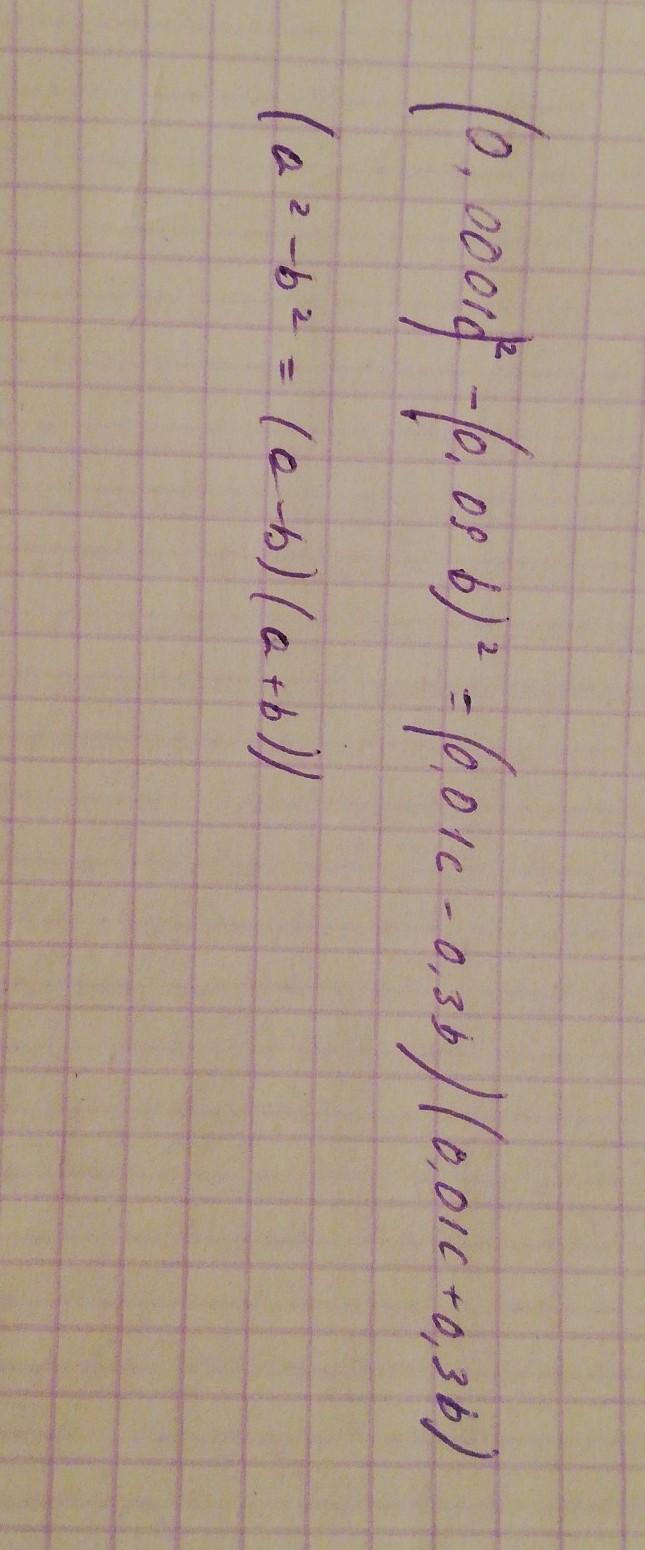 (0,0001c)² - (0,09b)² = (0,01c - 0,3b)(0,01c + 0,3b)
(a² - b² = (a - b)(a + b))